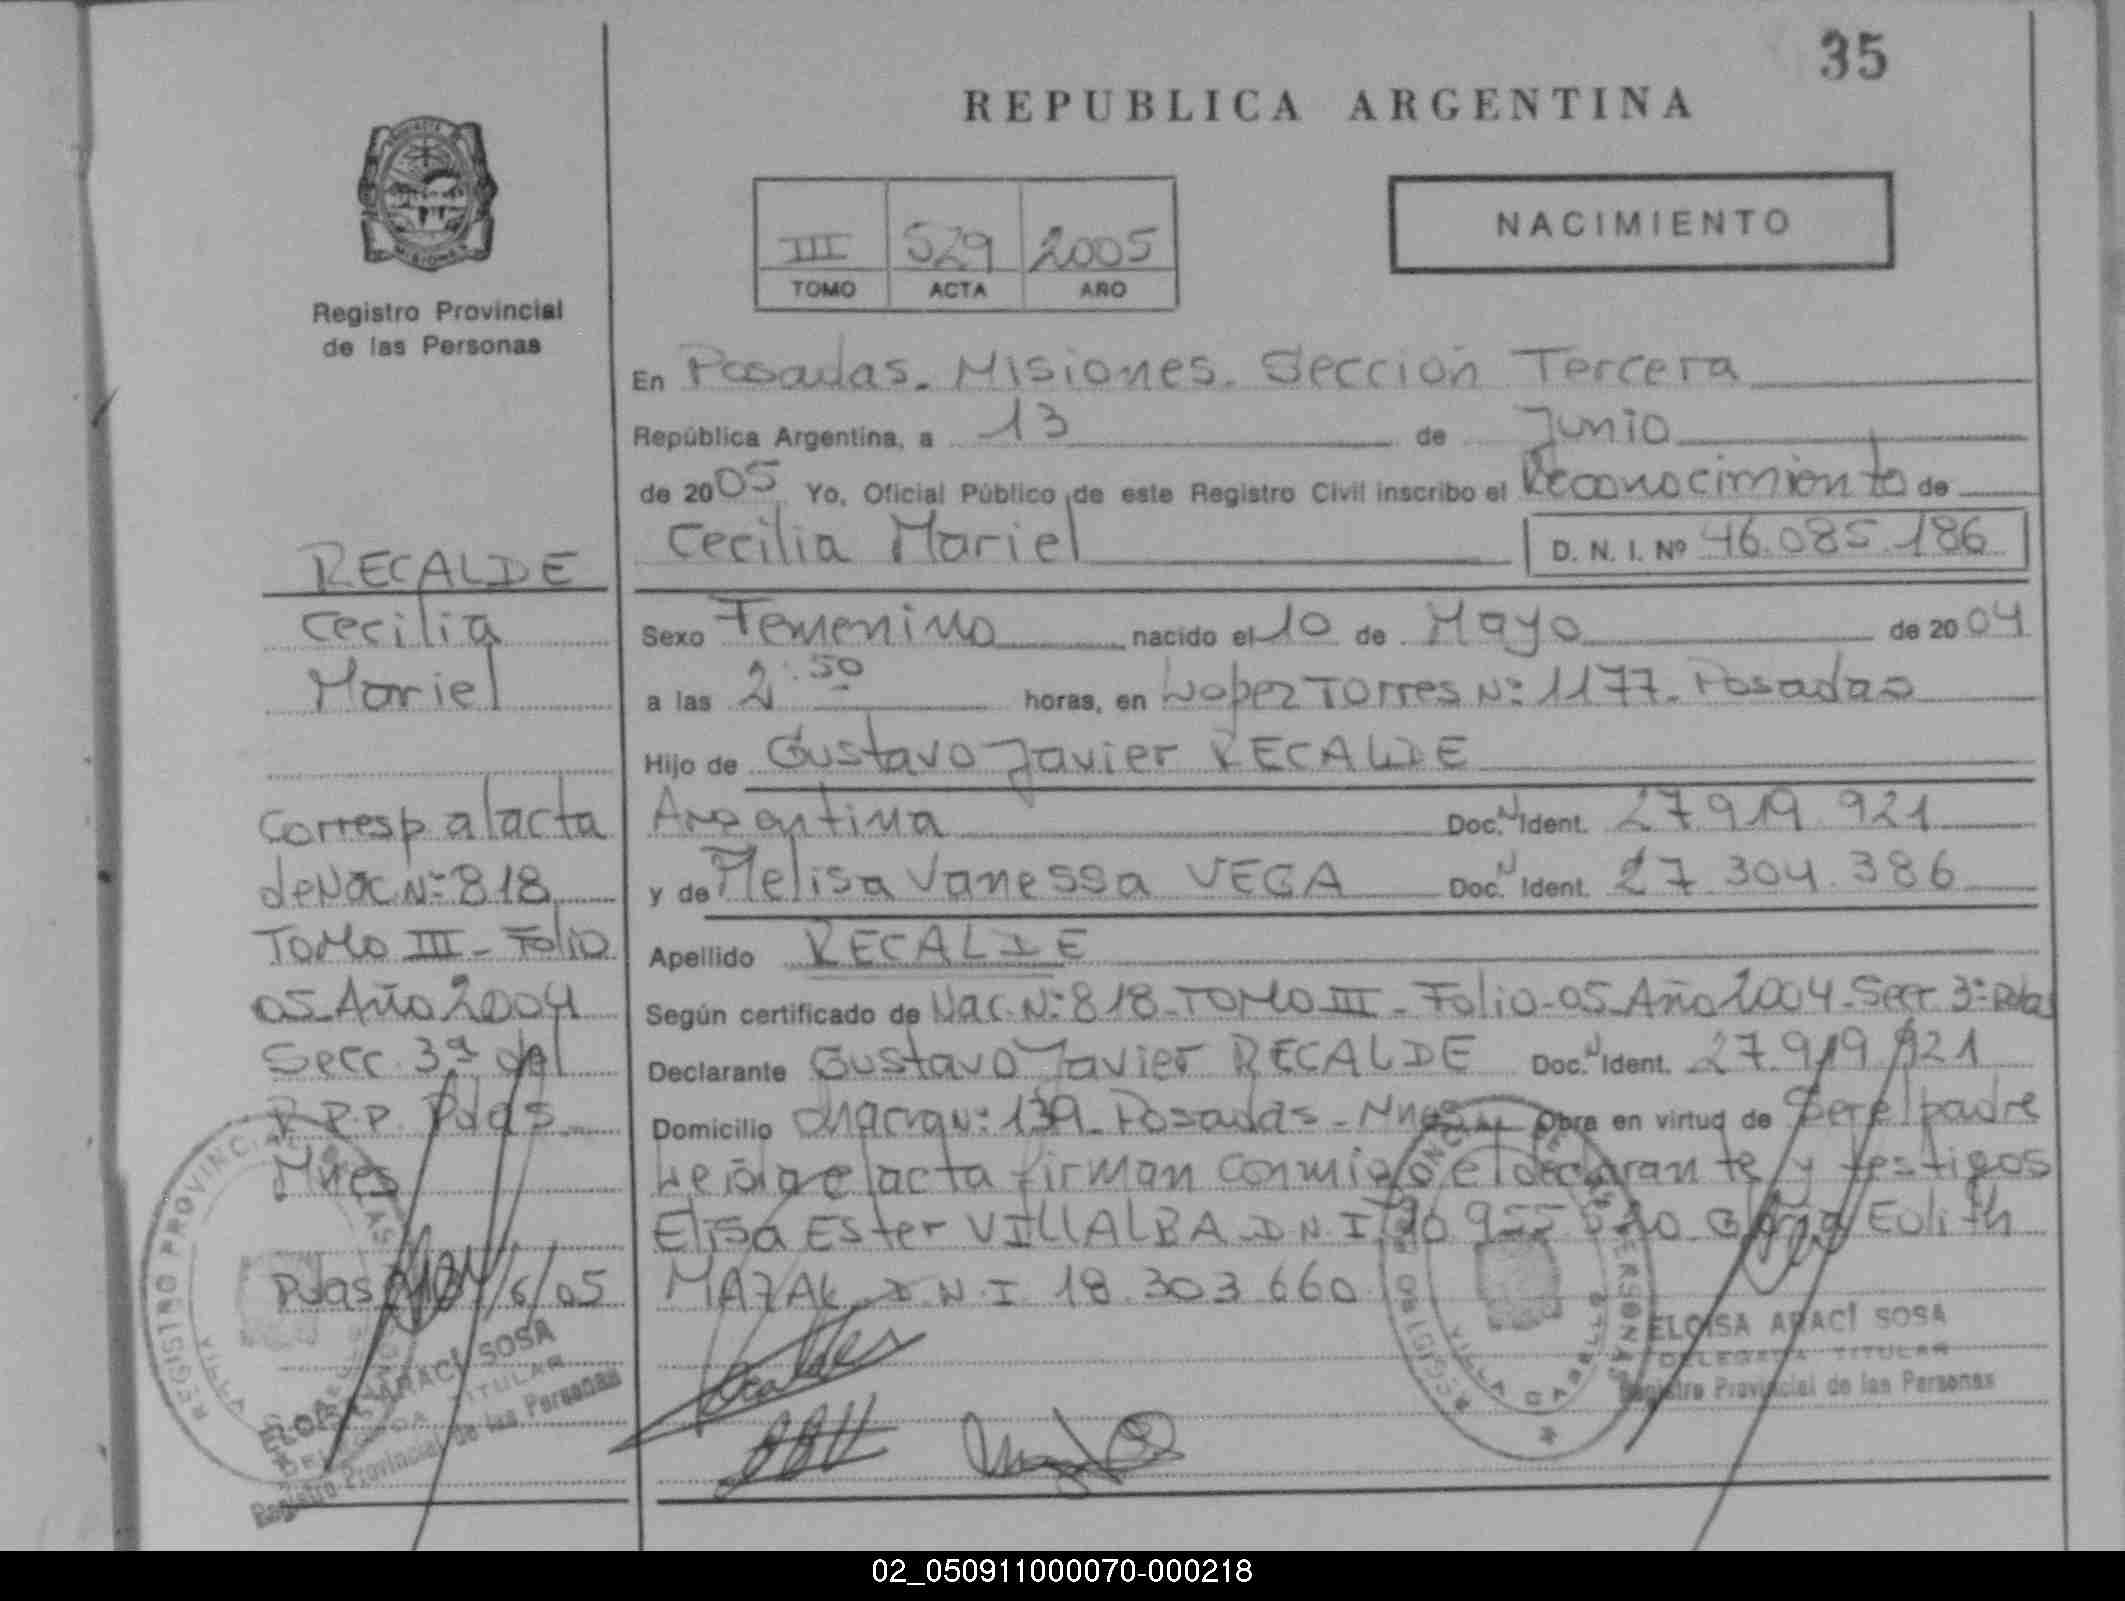 35
REPUBLICA ARGENTINA
NACIMIENTO
III 529 2005
TOMO ACTA AÑO
Registro Provincial
de las Personas
RECALDE
Cecilia
Mariel
Corresp al acta
de Nac. Nº 818
TOMO III - Folio
05 Año 2004
Secc. 3ª del
R.P.P. Pdas
Mnes
Pdas /6/05
En Posadas. Misiones. Sección Tercera
República Argentina, a 13 de Junio
de 2005 Yo, Oficial Público de este Registro Civil inscribo el Reconocimiento de
Cecilia Mariel D. N. I. Nº 46.085.186
Sexo Femenino nacido el 10 de Mayo de 2004
a las 2:50 horas, en Lopez Torres Nº 1177. Posadas
Hijo de Gustavo Javier RECALDE
Argentina Doc. N Ident. 27.919.921
y de Melisa Vanessa VEGA Doc. N Ident. 27.304.386
Apellido RECALDE
Según certificado de Nac. Nº 818 - TOMO III - Folio - 05 - Año 2004 - Secc 3ª Pdas
Declarante Gustavo Javier RECALDE Doc. N Ident. 27.919.921
Domicilio chacra Nº 139 - Posadas - Mnes Obra en virtud de Ser el padre
Leida el acta firman conmigo el declarante y testigos
Elisa Ester VILLALBA D.N.I Edith
D.N.I 18.303.660
ELOISA ARACÍ SOSA
DELEGADA TITULAR
Registro Provincial de las Personas
REGISTRO PROVINCIAL DE LAS PERSONAS
VILLA CABELLO
ELOISA ARACÍ SOSA
DELEGADA TITULAR
Registro Provincial de las Personas
02_050911000070-000218